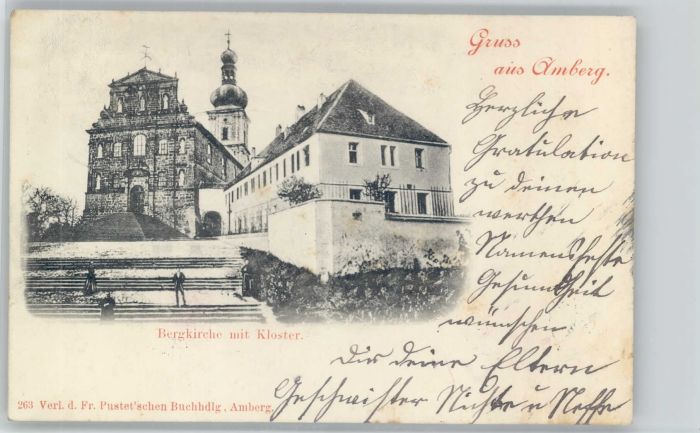 Gruss
aus Amberg.
Herzliche
Gratulation
zu deinem
werthen
Namensfeste
Gesundheit
wünschen
Dir deine Eltern
Geschwister Nichte u Neffe
Bergkirche mit Kloster.
263 Verl. d. Fr. Pustet'schen Buchhdlg, Amberg.